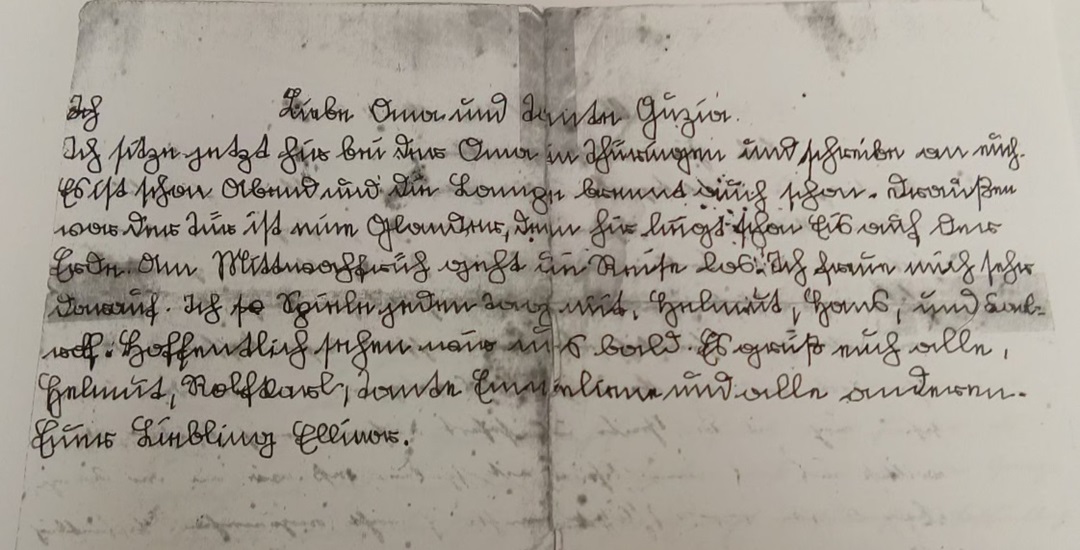 Ich Liebe Oma und Tante Guzia.
Ich sitze jetzt hir bei der Oma in Thüringen und schreibe an euch.
Es ist schon Abend und die Lampe brennt auch schon. Draußen
vor der Tür ist eine Glander, denn hir liegt schon Eis auf der
Erde. Am Mittwochfrüh geht die Reise los. Ich freue mich sehr
darauf. Ich Spiele jeden Tag mit, Helmut, Hans, und
Hoffentlich sehen wir uns bald. Es grüß euch alle,
Helmut, Rolfkarl, Tante Emmeline und alle anderen.
Eure Liebling Ellinor.